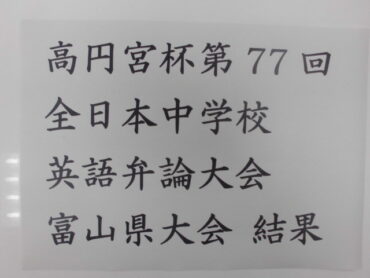 高円宮杯第 77 回
全日本中学校
英語弁論大会
富山県大会 結果